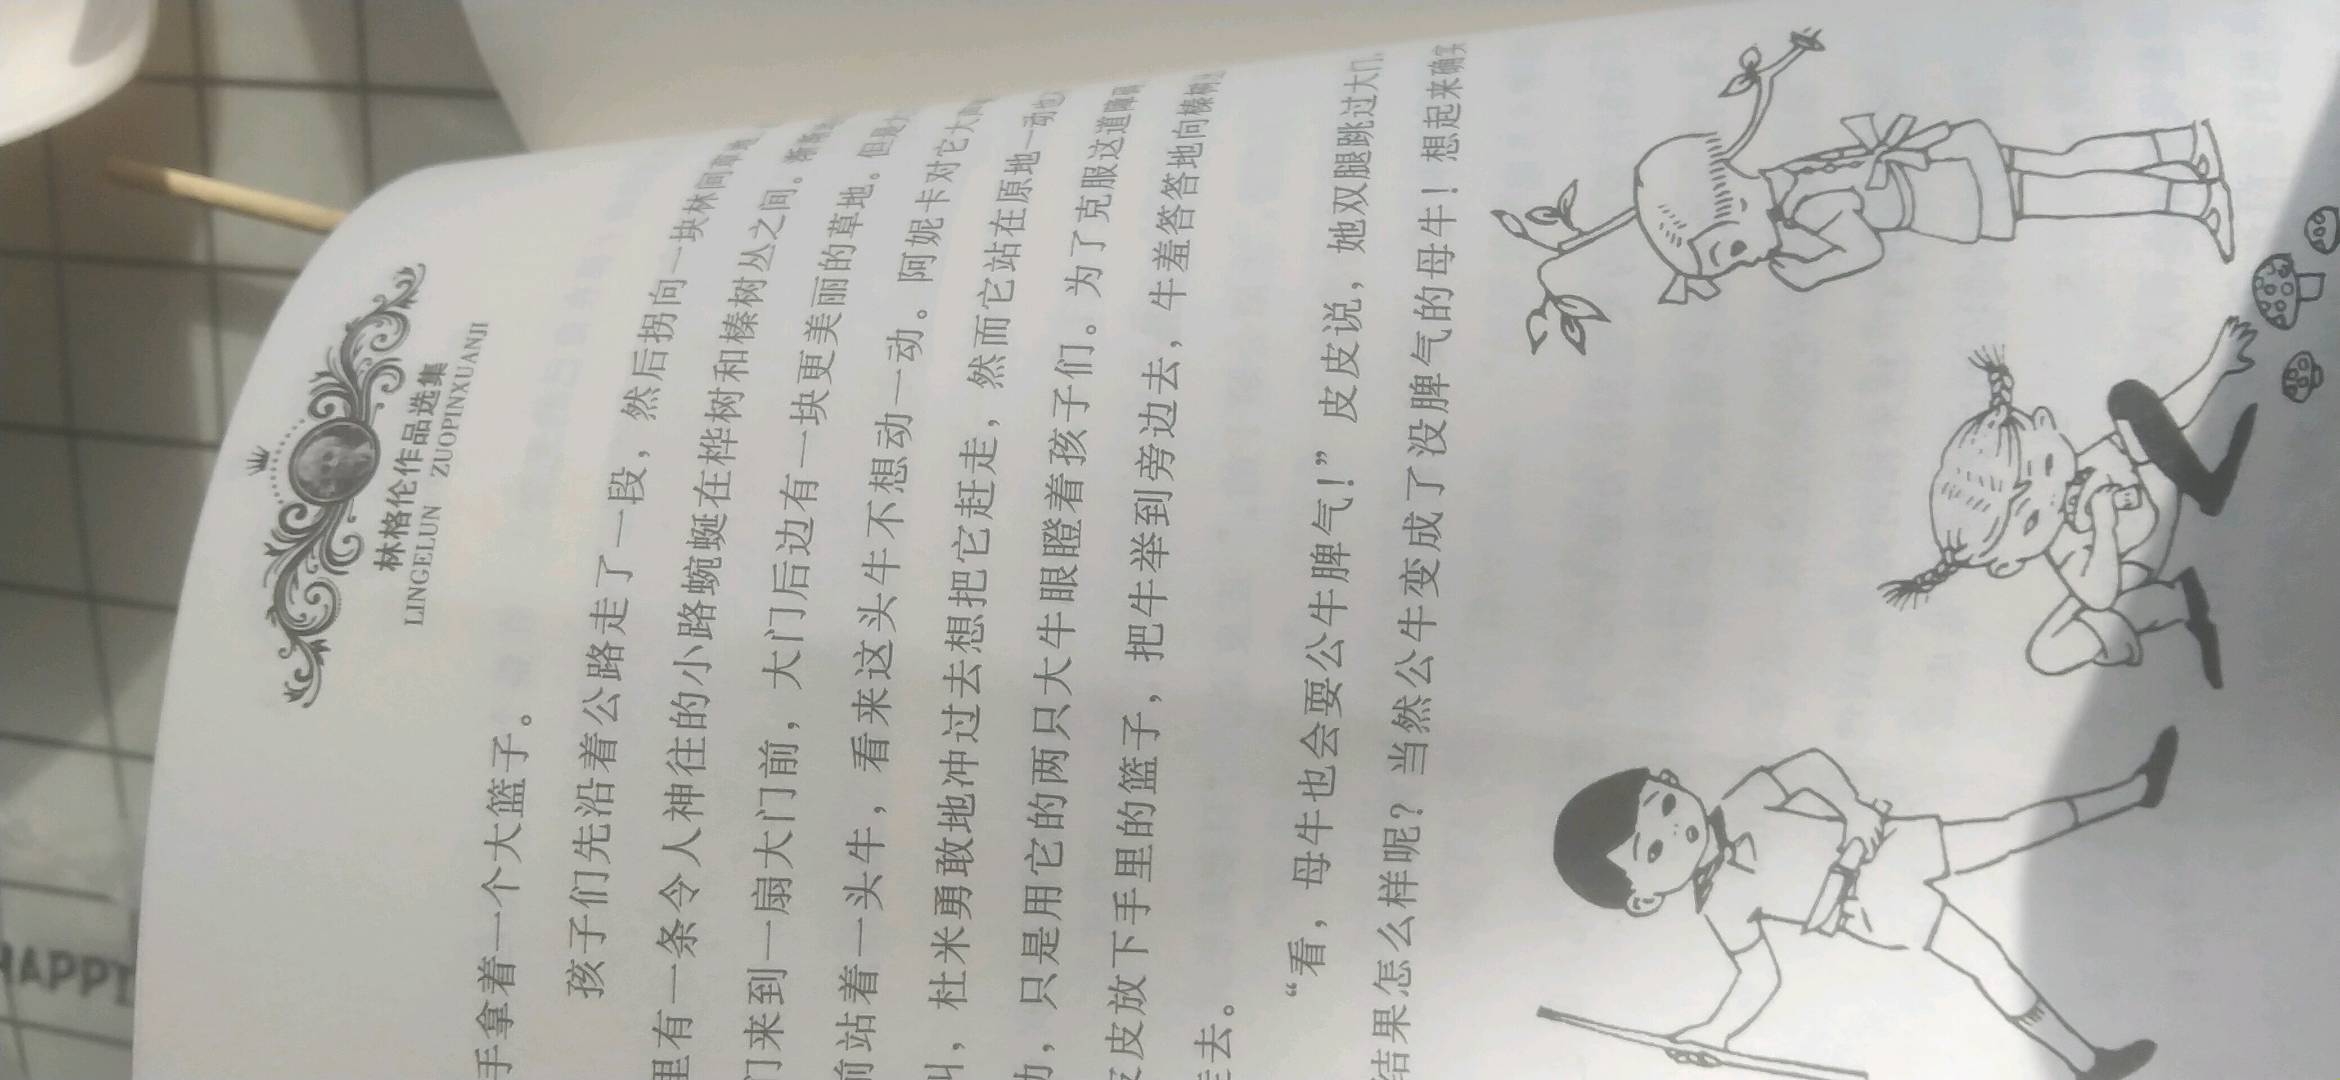 林格伦作品选集
LINGELUN ZUOPINXUANJI
手拿着一个大篮子。
孩子们先沿着公路走了一段，然后拐向一块林间
里有一条令人神往的小路蜿蜒在桦树和榛树丛之间。渐渐
门来到一扇大门前，大门后边有一块更美丽的草地。但是
前站着一头牛，看来这头牛不想动一动。阿妮卡对它大
叫，杜米勇敢地冲过去想把它赶走，然而它站在原地一动也
动，只是用它的两只大牛眼瞪着孩子们。为了克服这道障
皮皮放下手里的篮子，把牛举到旁边去，牛羞答答地向榛树
走去。
“看，母牛也会耍公牛脾气！”皮皮说，她双腿跳过大门，
结果怎么样呢？当然公牛变成了没脾气的母牛！想起来确实
HAPPI